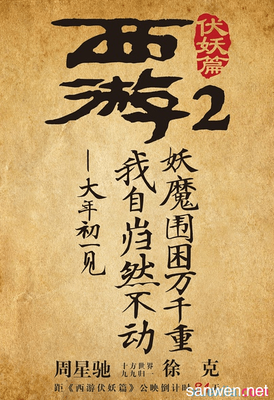 西游2
伏妖篇
妖魔围困万千重
我自岿然不动
—大年初一见
周星驰 十方世界 九九归一 徐克
距《西游伏妖篇》公映倒计时
sanwen.net